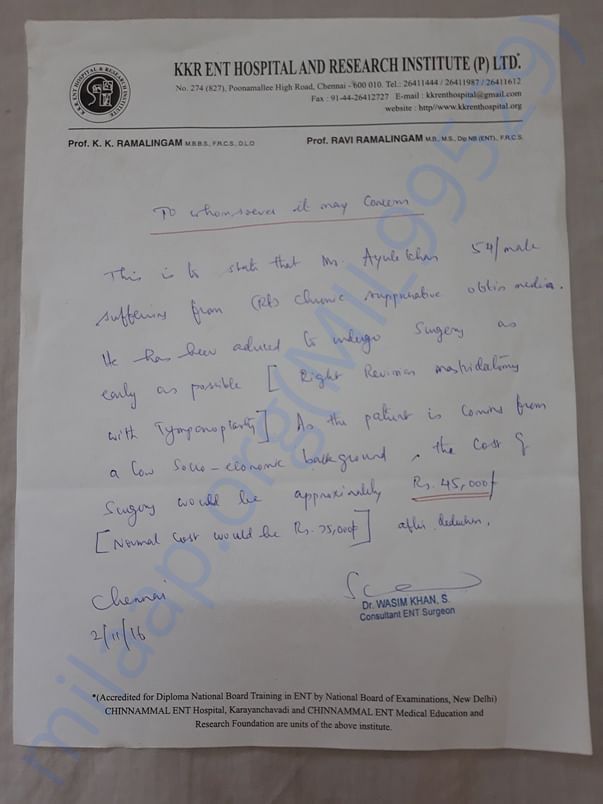 KKR ENT HOSPITAL AND RESEARCH INSTITUTE (P) LTD.*
No. 274 (827), Poonamallee High Road, Chennai - 600 010. Tel.: 26411444 / 26411987 / 26411612
Fax : 91-44-26412727 E-mail : kkrenthospital@gmail.com
website : http//www.kkrenthospital.org
KKR ENT HOSPITAL & RESEARCH INSTITUTE
Prof. K. K. RAMALINGAM M.B.B.S., F.R.C.S., D.L.O
Prof. RAVI RAMALINGAM M.B., M.S., Dip NB (ENT)., F.R.C.S.
To whomsoever it may Concern
This is to state that Mr. Ayub Khan 54/male
suffering from (Rt) chronic suppurative otitis media.
He has been advised to undergo Surgery as
early as possible [Right Revision mastoidectomy
with Tympanoplasty] As the patient is coming from
a low Socio-economic background, the cost of
Surgery would be approximately Rs. 45,000/-
[Normal cost would be Rs. 75,000/-] after deduction.
Chennai
2/11/16
Dr. WASIM KHAN, S.
Consultant ENT Surgeon
*(Accredited for Diploma National Board Training in ENT by National Board of Examinations, New Delhi)
CHINNAMMAL ENT Hospital, Karayanchavadi and CHINNAMMAL ENT Medical Education and
Research Foundation are units of the above institute.
milaap.org(MII_99529)